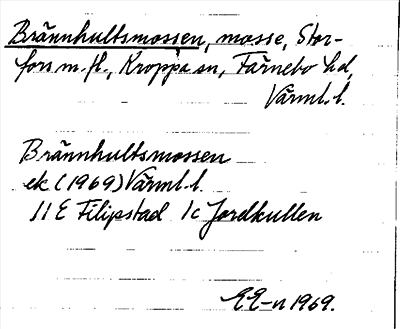 Brännhultsmossen, mosse, Stor-
fors m.fl., Kroppa sn, Färnebo hd,
Värml.l.
Brännhultsmossen
ek (1969) Värml.l.
11E Filipstad 1c Jordkullen
EE-n 1969.